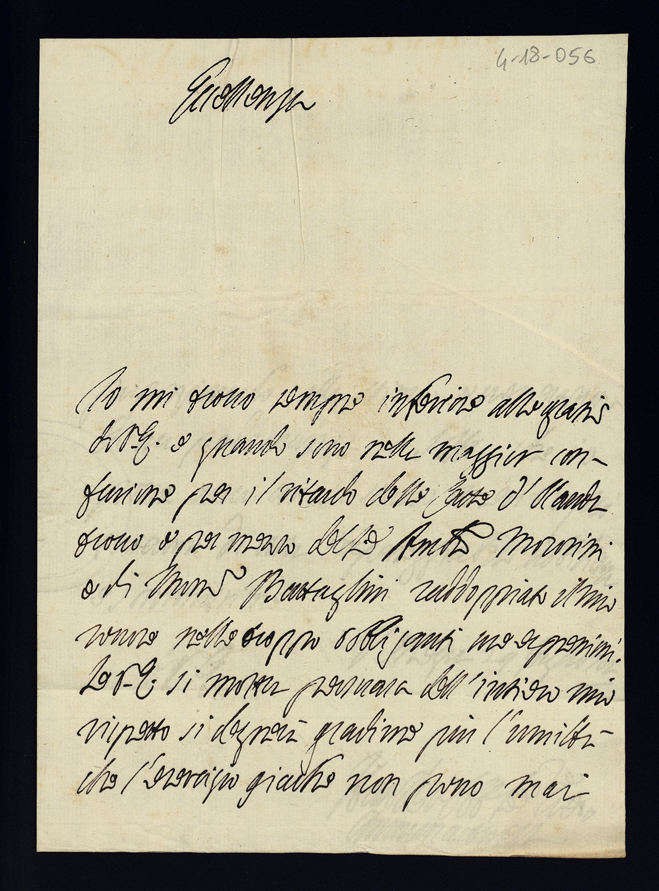 4-18-056
Eccellenza
Io mi trovo sempre inferiore alle grazie
di V. E. e quando sono nella maggior con-
fusione per il ritardo delle Carte d'Olanda
trovo e per mezzo dell' Amb.re Morosini
e di Mons.r Battaglini raddoppiato il mio
nelle troppo obbliganti sue espressioni.
Se V. E. si mostra persuasa dell' intiero mio
rispetto si degnerà gradirne più l'umiltà
che l'esercizio giacché non sono mai